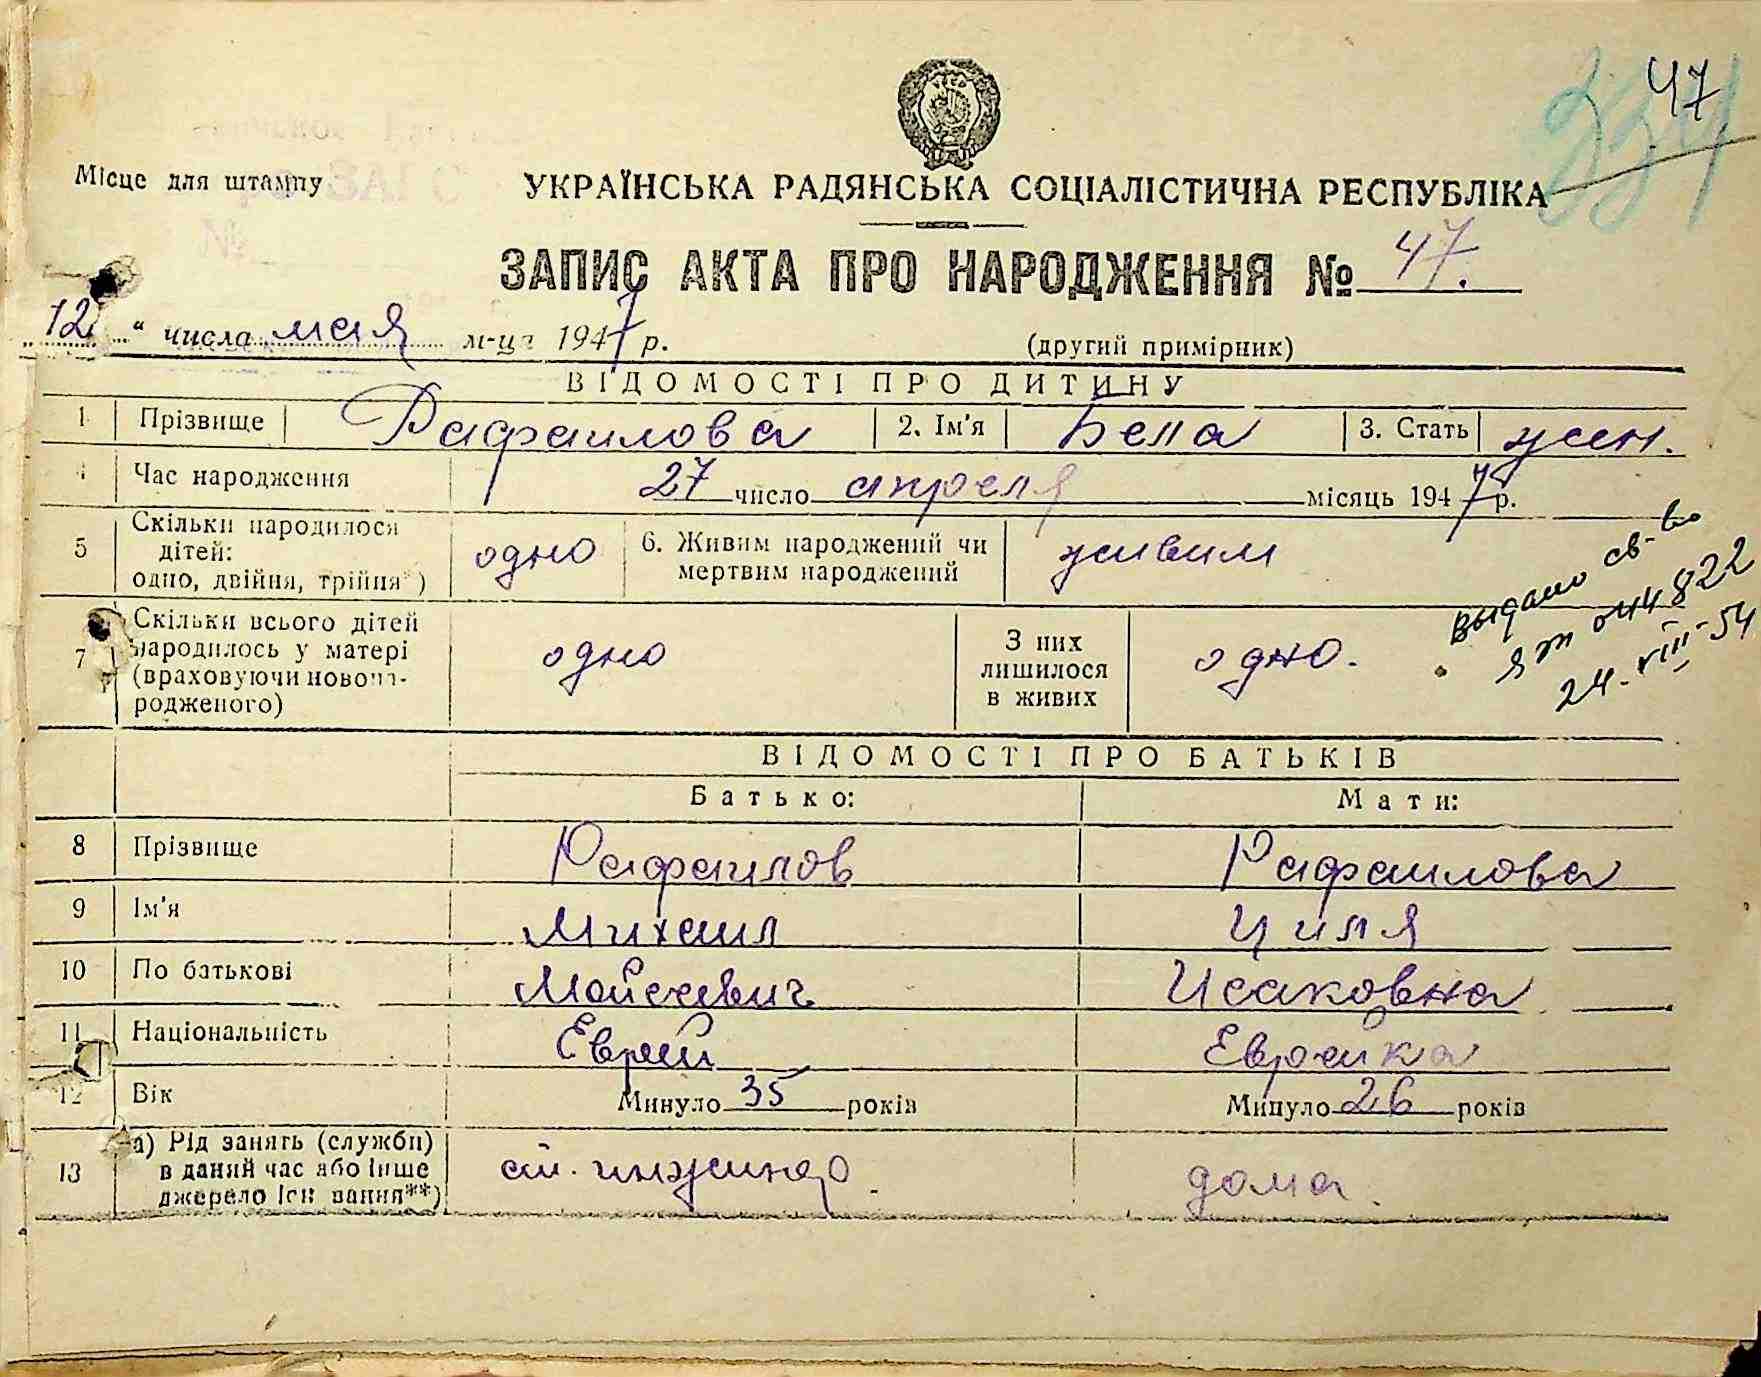 47
334
Місце для штампу
УКРАЇНСЬКА РАДЯНСЬКА СОЦІАЛІСТИЧНА РЕСПУБЛІКА
ЗАГС
№
ЗАПИС АКТА ПРО НАРОДЖЕННЯ № 47.
12 " числа мая м-ця 1947 р. (другий примірник)
ВІДОМОСТІ ПРО ДИТИНУ
1 Прізвище Рафаилова 2. Ім'я Бела 3. Стать жен.
4 Час народження 27 число апреля місяць 1947 р.
5 Скільки народилося дітей: одно, двійня, трійня*) одно 6. Живим народжений чи мертвим народжений живим
выдано св-во
ЯТ 044822
24-VIII-54
7 Скільки всього дітей народилось у матері (враховуючи новонародженого) одно З них лишилося в живих одно.
ВІДОМОСТІ ПРО БАТЬКІВ
Батько: Мати:
8 Прізвище Рафаилов Рафаилова
9 Ім'я Михаил Циля
10 По батькові Мойсеевич Исаковна
11 Національність Еврей Еврейка
12 Вік Минуло 35 років Минуло 26 років
13 а) Рід занять (служби) в даний час або інше джерело існування**) ст. инжинер. дома.